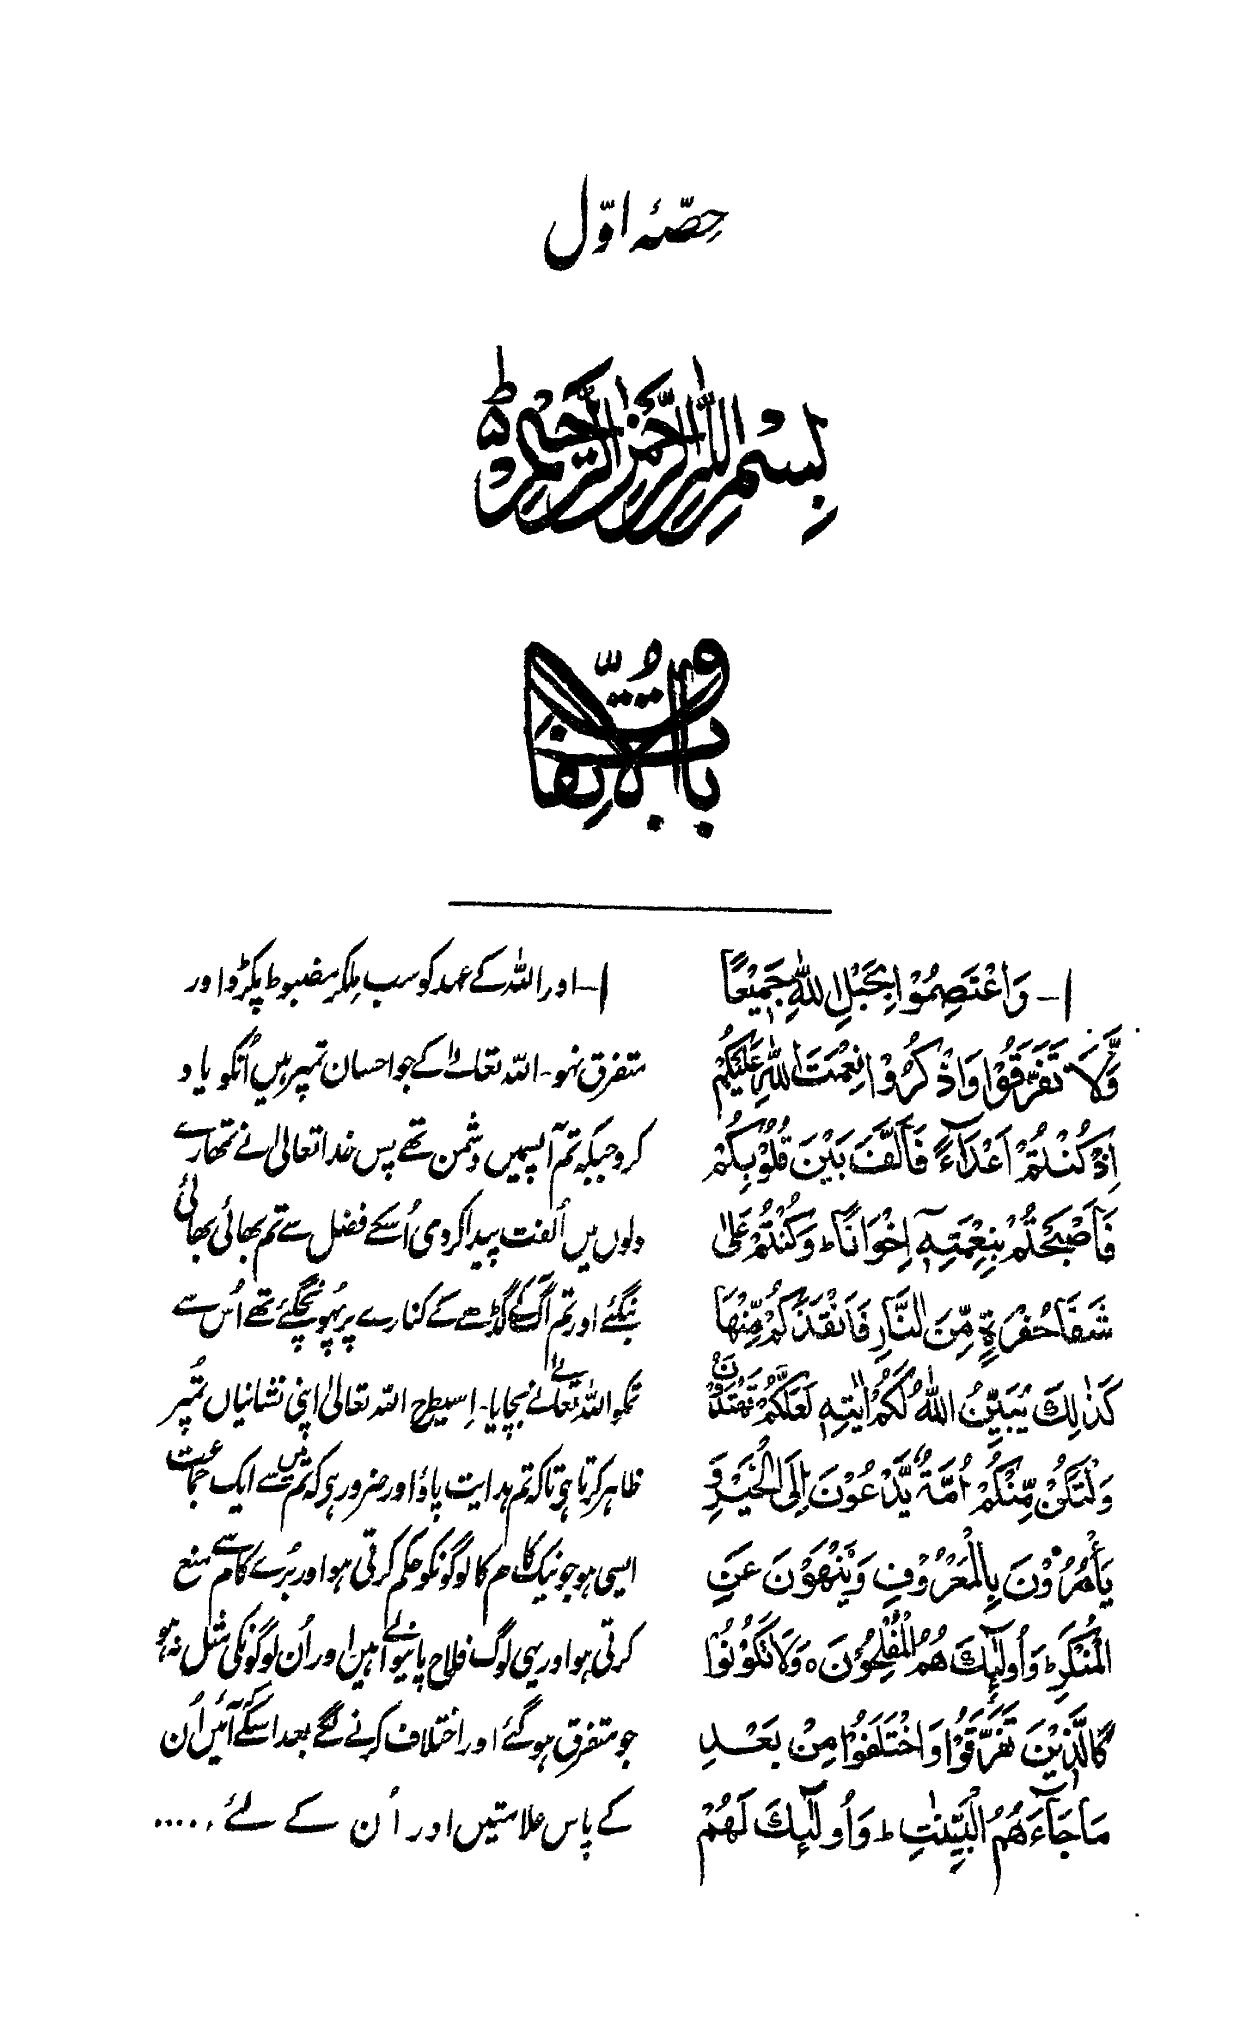 حِصّۂ اوّل
بِسْمِ اللّٰهِ الرَّحْمٰنِ الرَّحِيْمِ ط
بابُ الاتِّفاق
١ــ وَاعْتَصِمُوْا بِحَبْلِ اللّٰهِ جَمِيْعًا
وَّلَا تَفَرَّقُوْا وَاذْكُرُوْا نِعْمَتَ اللّٰهِ عَلَيْكُمْ
اِذْ كُنْتُمْ اَعْدَآءً فَاَلَّفَ بَيْنَ قُلُوْبِكُمْ
فَاَصْبَحْتُمْ بِنِعْمَتِهٖٓ اِخْوَانًا ط وَكُنْتُمْ عَلٰى
شَفَا حُفْرَةٍ مِّنَ النَّارِ فَاَنْقَذَكُمْ مِّنْهَا
كَذٰلِكَ يُبَيِّنُ اللّٰهُ لَكُمْ اٰيٰتِهٖ لَعَلَّكُمْ تَهْتَدُوْنَ
وَلْتَكُنْ مِّنْكُمْ اُمَّةٌ يَّدْعُوْنَ اِلَى الْخَيْرِ وَ
يَأْمُرُوْنَ بِالْمَعْرُوْفِ وَيَنْهَوْنَ عَنِ
الْمُنْكَرِ ط وَاُولٰٓئِكَ هُمُ الْمُفْلِحُوْنَ ه وَلَا تَكُوْنُوْا
كَالَّذِيْنَ تَفَرَّقُوْا وَاخْتَلَفُوْا مِنْ بَعْدِ
مَا جَآءَهُمُ الْبَيِّنٰتِ ط وَاُولٰٓئِكَ لَهُمْ
١ــ اور اللّٰہ کے عہد کو سب ملکر مضبوط پکڑو اور
متفرق نہو ـ اللّٰہ تعالےٰ کے جو احسان تمپر ہیں اُنکو یاد
کرو جبکہ تم آپسمیں دشمن تھے پس خدا تعالیٰ نے تمھارے
دلوں میں اُلفت پیدا کر دی اُسکے فضل سے تم بھائی بھائی
بنگئے اور تم آگ کے گڑھے کے کنارے پر پہُونچگئے تھے اُس سے
تمکو اللّٰہ تعالےٰ نے بچایا ـ اِسیطرح اللّٰہ تعالیٰ اپنی نشانیاں تُمپر
ظاہر کرتا ہی تاکہ تم ہدایت پاؤ اور ضرور ہی کہ تم میں سے ایک جماعت
ایسی ہو جو نیک کام کا لوگونکو حکم کرتی ہو اور بُرے کام سے منع
کرتی ہو اور یہی لوگ فلاح پانیوالے ہیں اور اُن لوگونکی مثل نہ ہو
جو متفرق ہو گئے اور اختلاف کرنے لگے بعد اسکے کہ آئیں اُن
کے پاس علامتیں اور اُن کے لئے .....